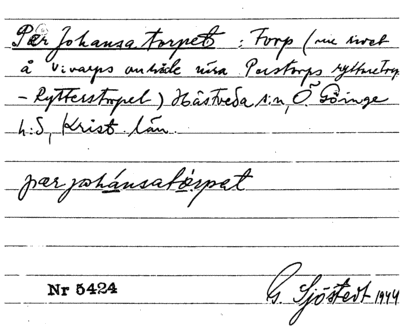 Per Johansa torpet : Torp (nu rivet
å Vivarps område nära Perstorps ryttaretorp
- Rytterstorpet) Hästveda s:n, Ö. Göinge
h:d, Krist. län.
pær johánsatórpat
Nr 5424
G. Sjöstedt 1944